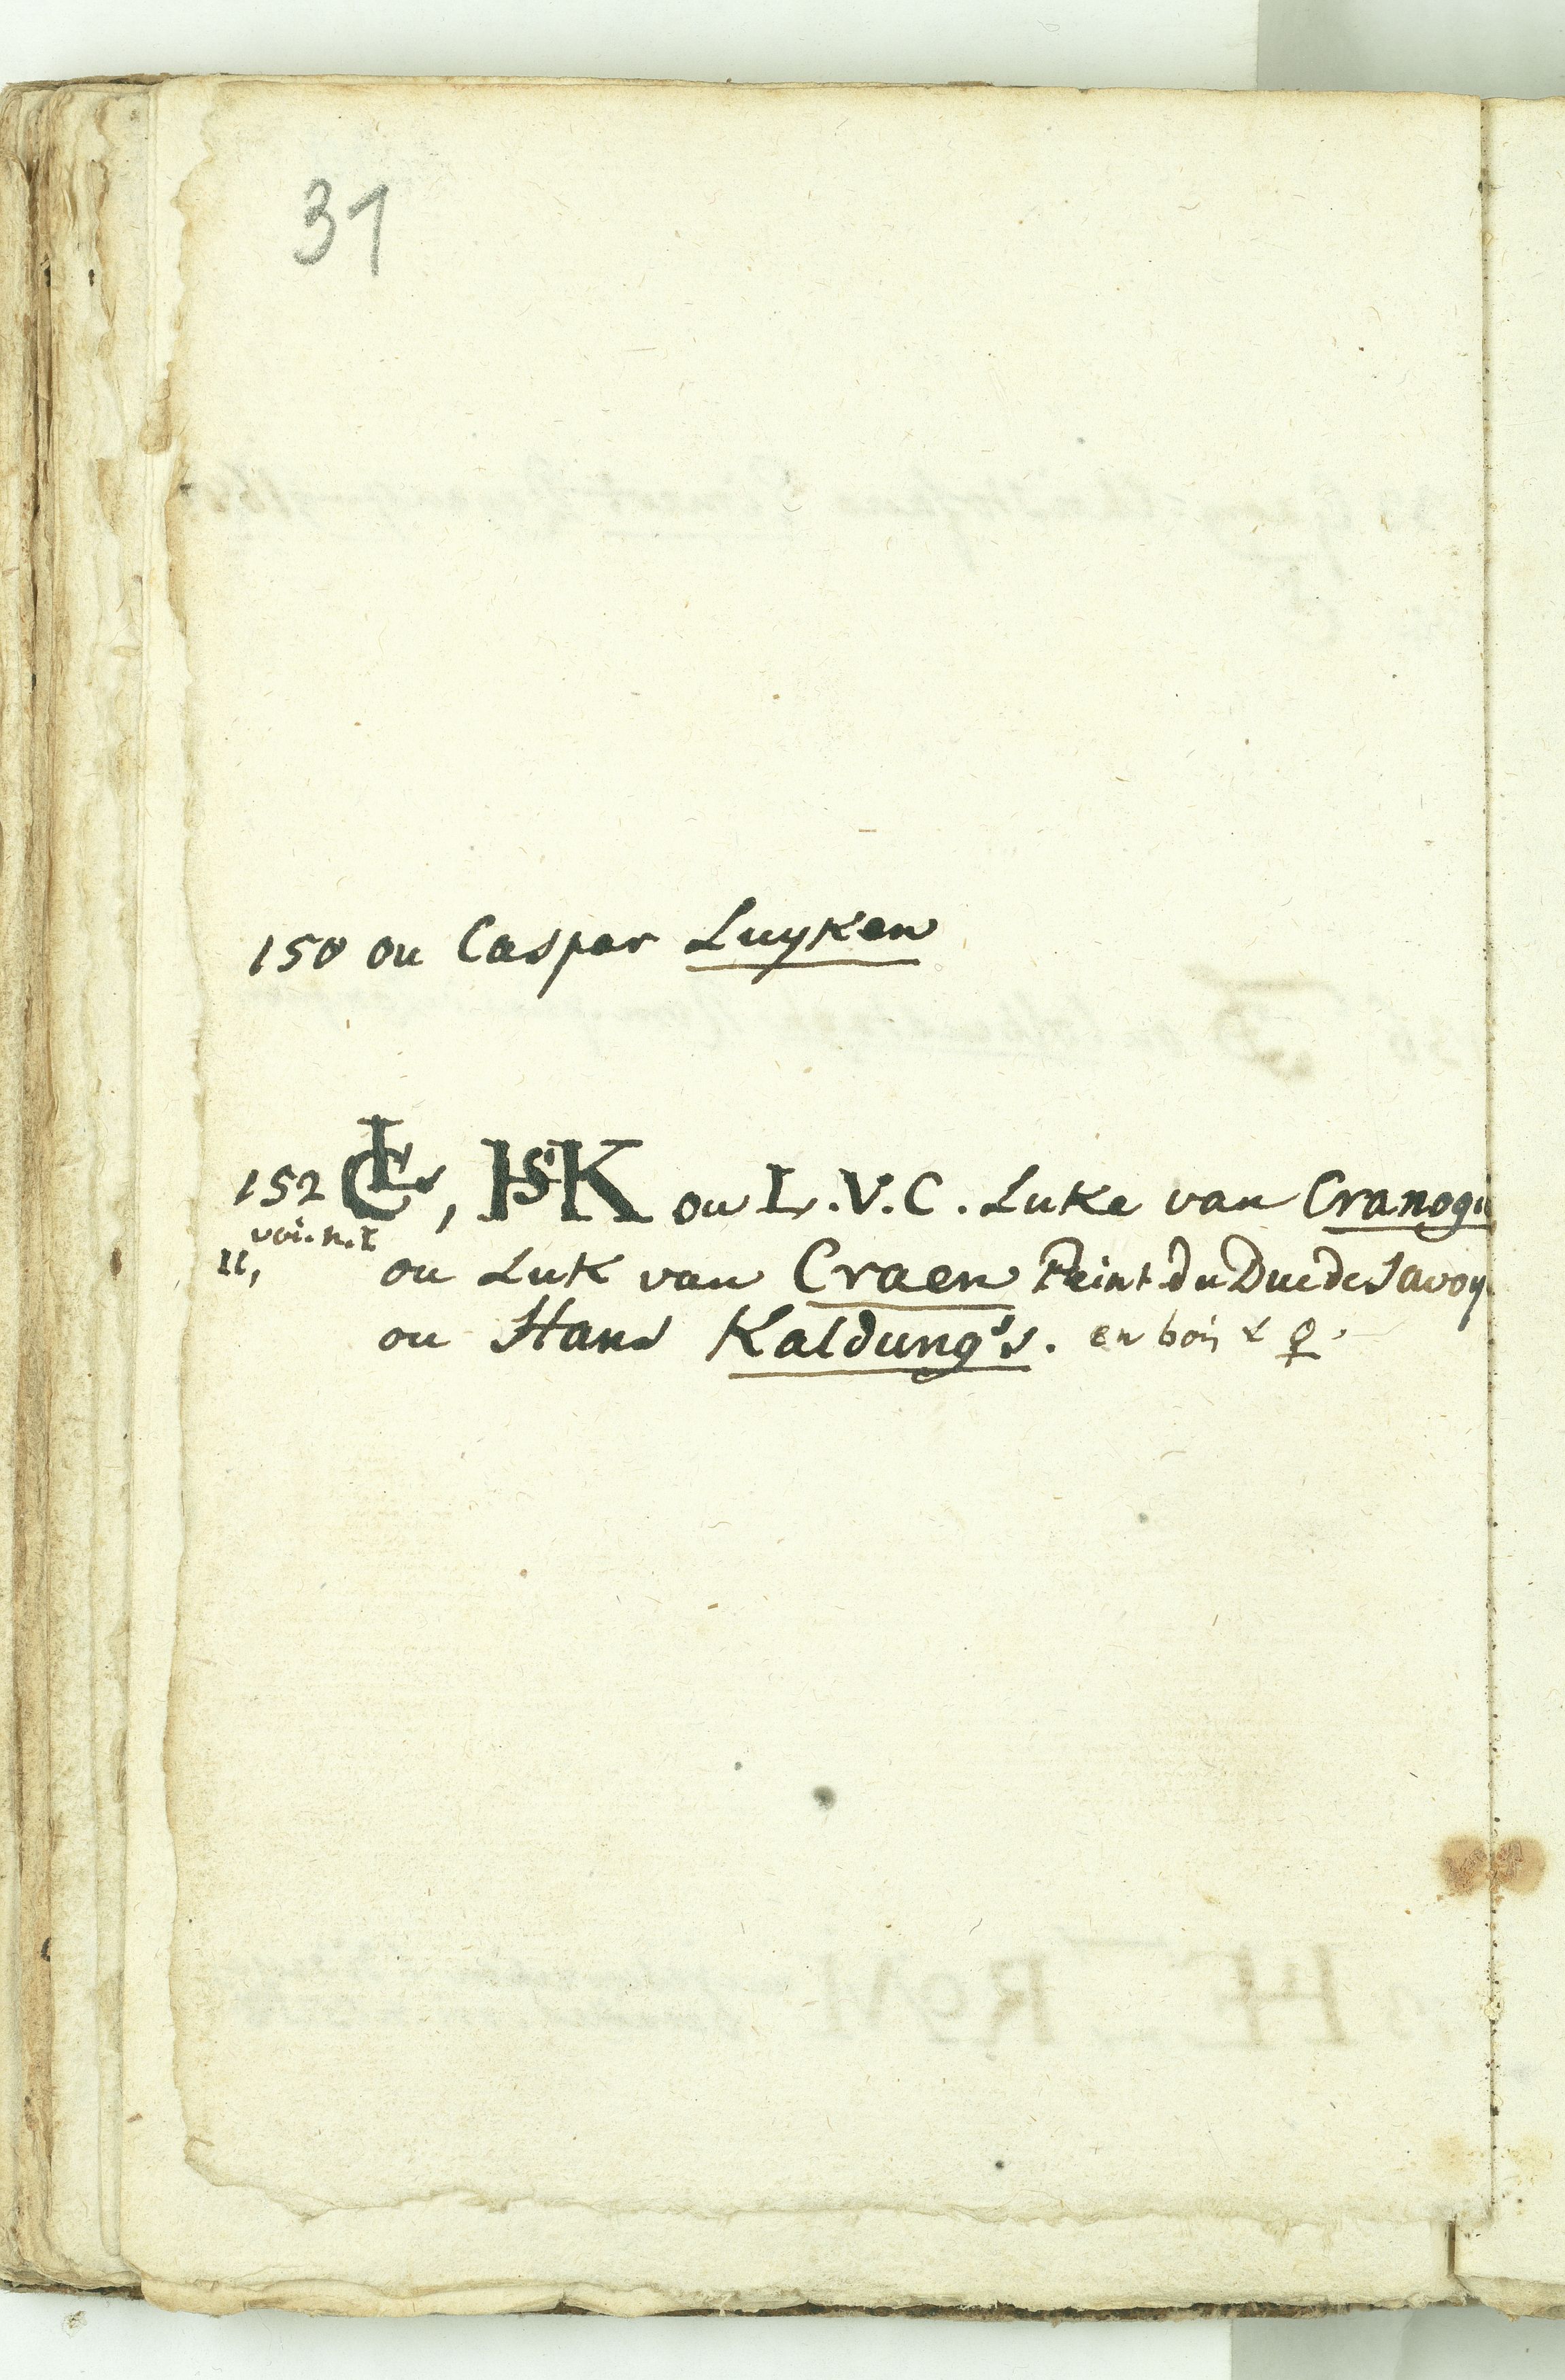 31
150 ou Caspar Luyken
152 LC, HSK ou L.V.C. Luke van Cranogi
voi. n. 1
11, ou Luk van Craen Peint. du Duc de Savoy
ou Hans Kaldung's. en bois & ♀.